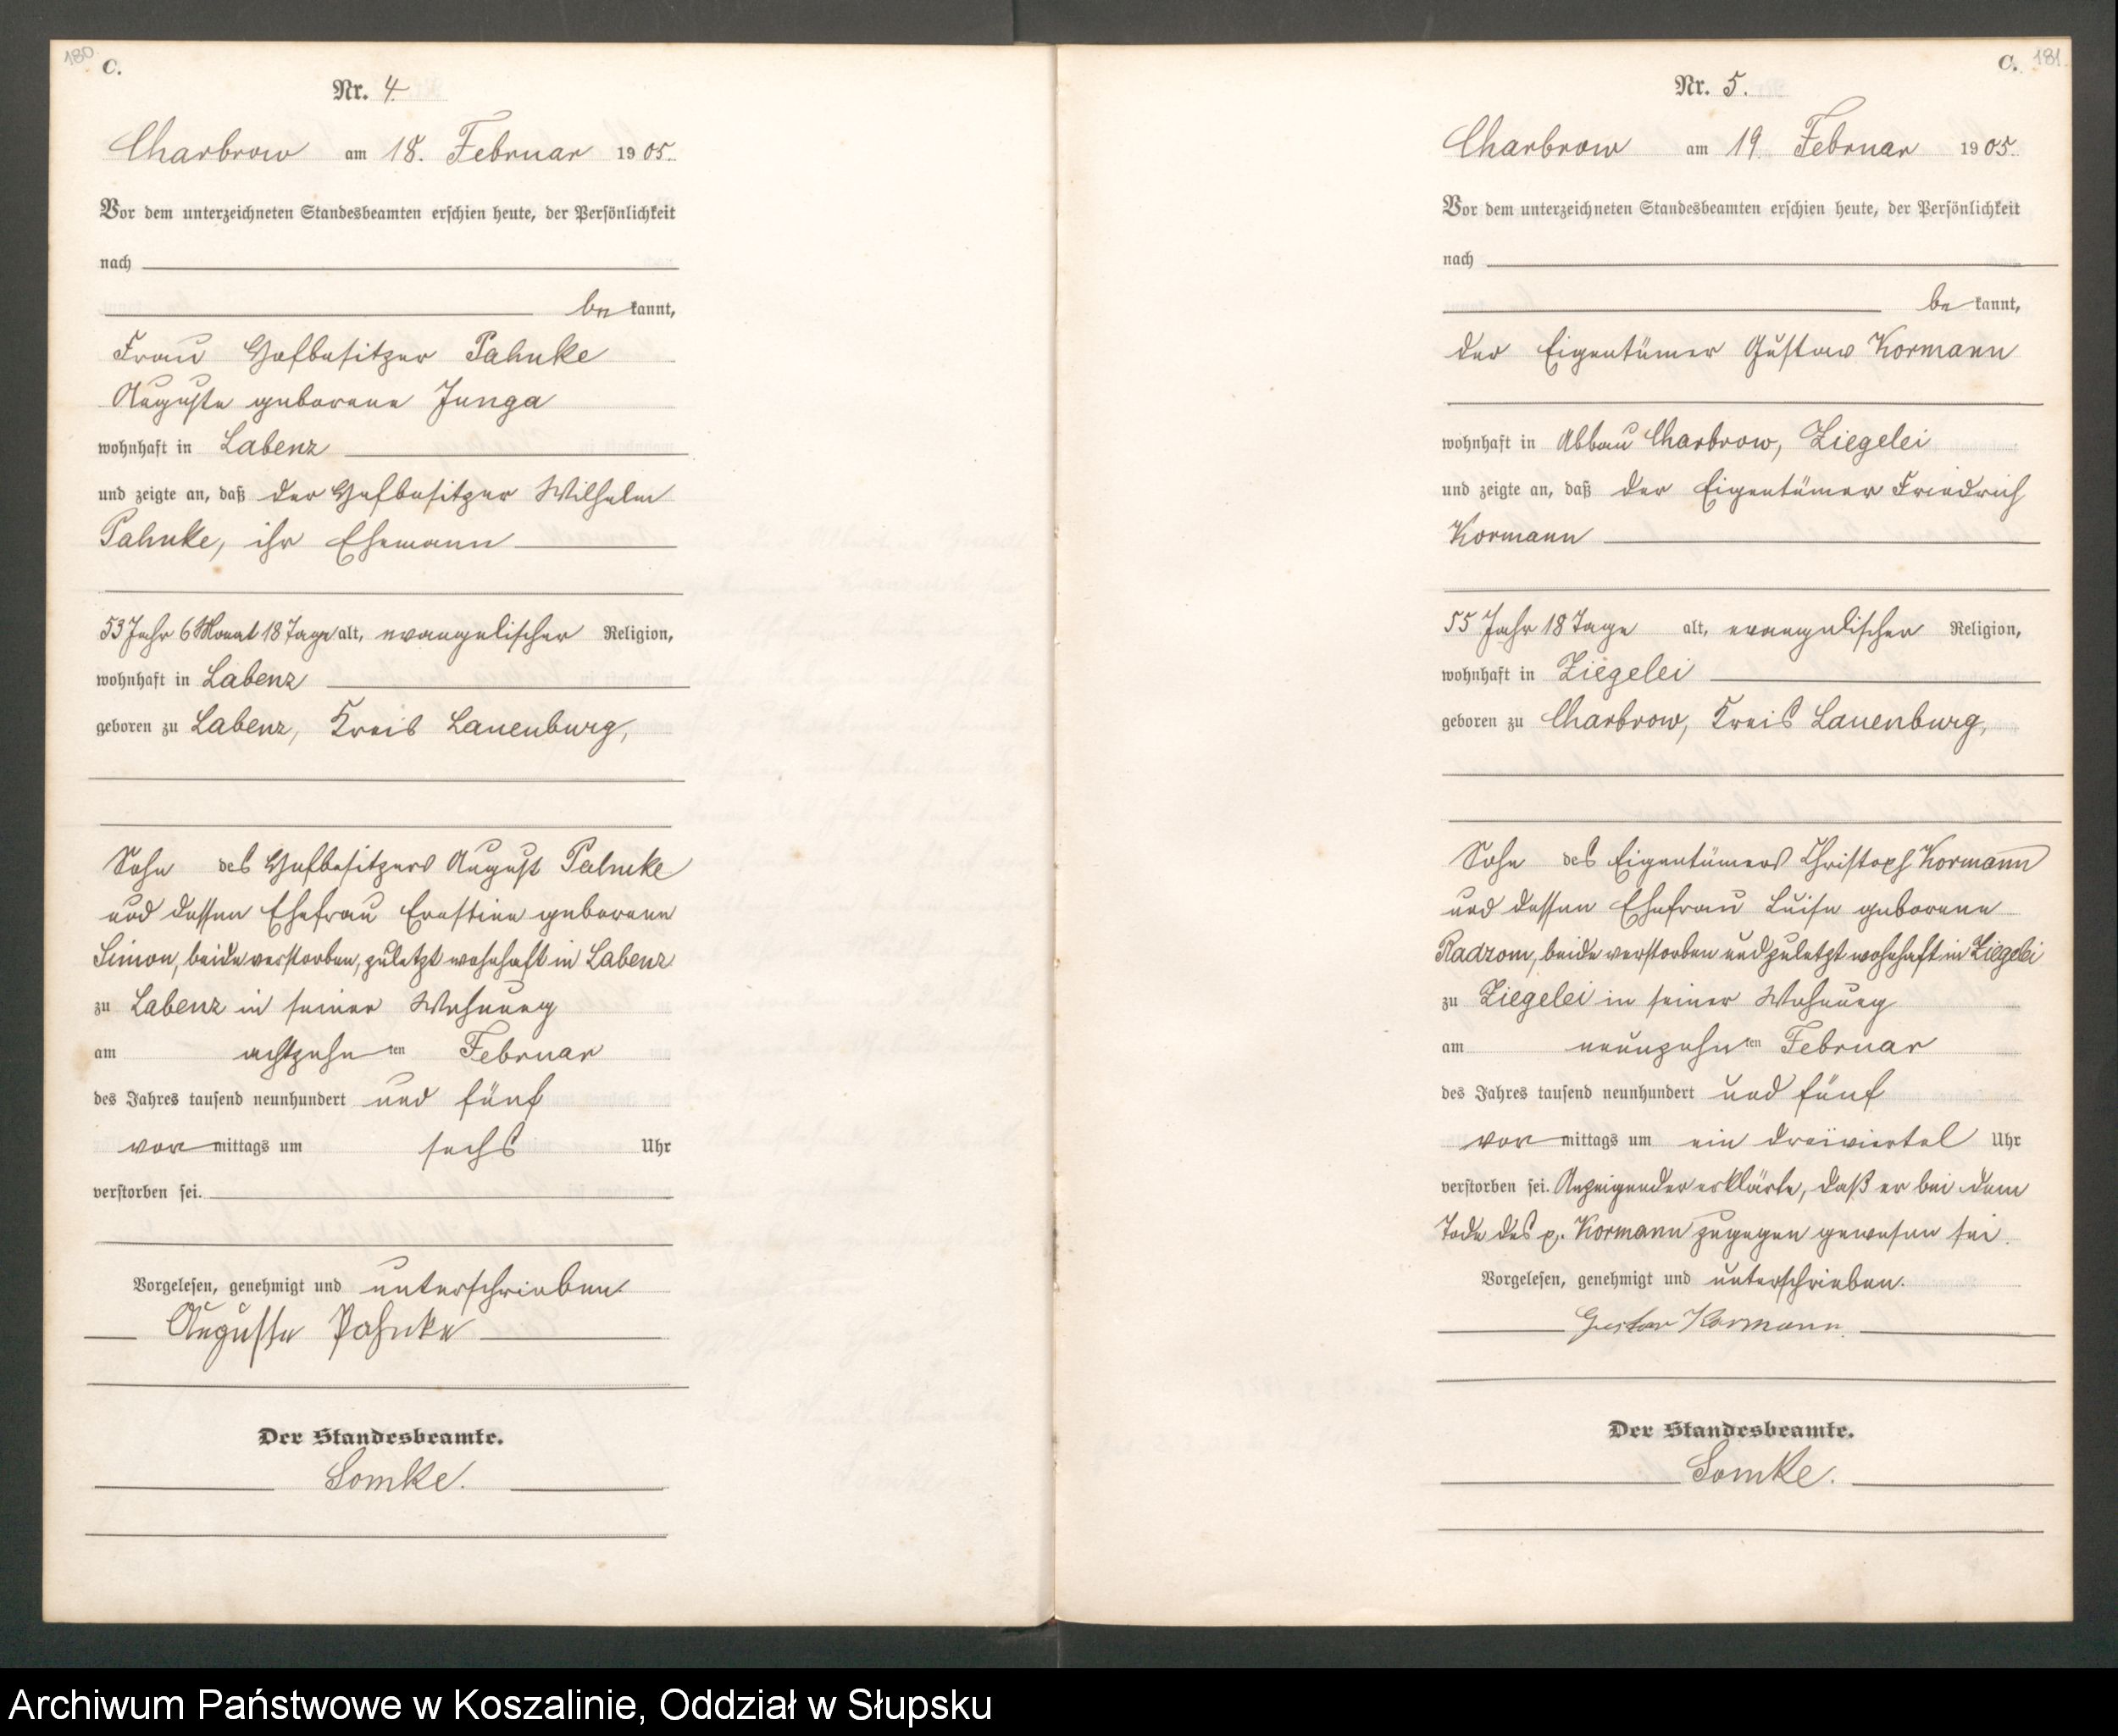 180
C.
Nr. 4.
Charbrow am 18. Februar 1905.
Vor dem unterzeichneten Standesbeamten erschien heute, der Persönlichkeit
nach
be kannt,
Frau Hofbesitzer Pahnke
Auguste geborene Junga
wohnhaft in Labenz
und zeigte an, daß der Hofbesitzer Wilhelm
Pahnke, ihr Ehemann
53 Jahr 6 Monat 18 Tage alt, evangelischer Religion,
wohnhaft in Labenz
geboren zu Labenz, Kreis Lauenburg,
Sohn des Hofbesitzers August Pahnke
und dessen Ehefrau Ernstine geborene
Simon, beide verstorben, zuletzt wohnhaft in Labenz
zu Labenz in seiner Wohnung
am achtzehnten Februar
des Jahres tausend neunhundert und fünf
vor mittags um sechs Uhr
verstorben sei.
Vorgelesen, genehmigt und unterschrieben
Auguste Pahnke
Der Standesbeamte.
Lomke.
C. 181
Nr. 5.
Charbrow am 19. Februar 1905.
Vor dem unterzeichneten Standesbeamten erschien heute, der Persönlichkeit
nach
be kannt,
der Eigentümer Gustav Kormann
wohnhaft in Abbau Charbrow, Ziegelei
und zeigte an, daß der Eigentümer Friedrich
Kormann
55 Jahr 18 Tage alt, evangelischer Religion,
wohnhaft in Ziegelei
geboren zu Charbrow, Kreis Lauenburg,
Sohn des Eigentümers Christoph Kormann
und dessen Ehefrau Luise geborene
Radzom, beide verstorben und zuletzt wohnhaft in Ziegelei
zu Ziegelei in seiner Wohnung
am neunzehnten Februar
des Jahres tausend neunhundert und fünf
vor mittags um ein dreiviertel Uhr
verstorben sei. Anzeigender erklärte, daß er bei dem
Tode des p. Kormann zugegen gewesen sei.
Vorgelesen, genehmigt und unterschrieben.
Gustav Kormann.
Der Standesbeamte.
Lomke.
Archiwum Państwowe w Koszalinie, Oddział w Słupsku